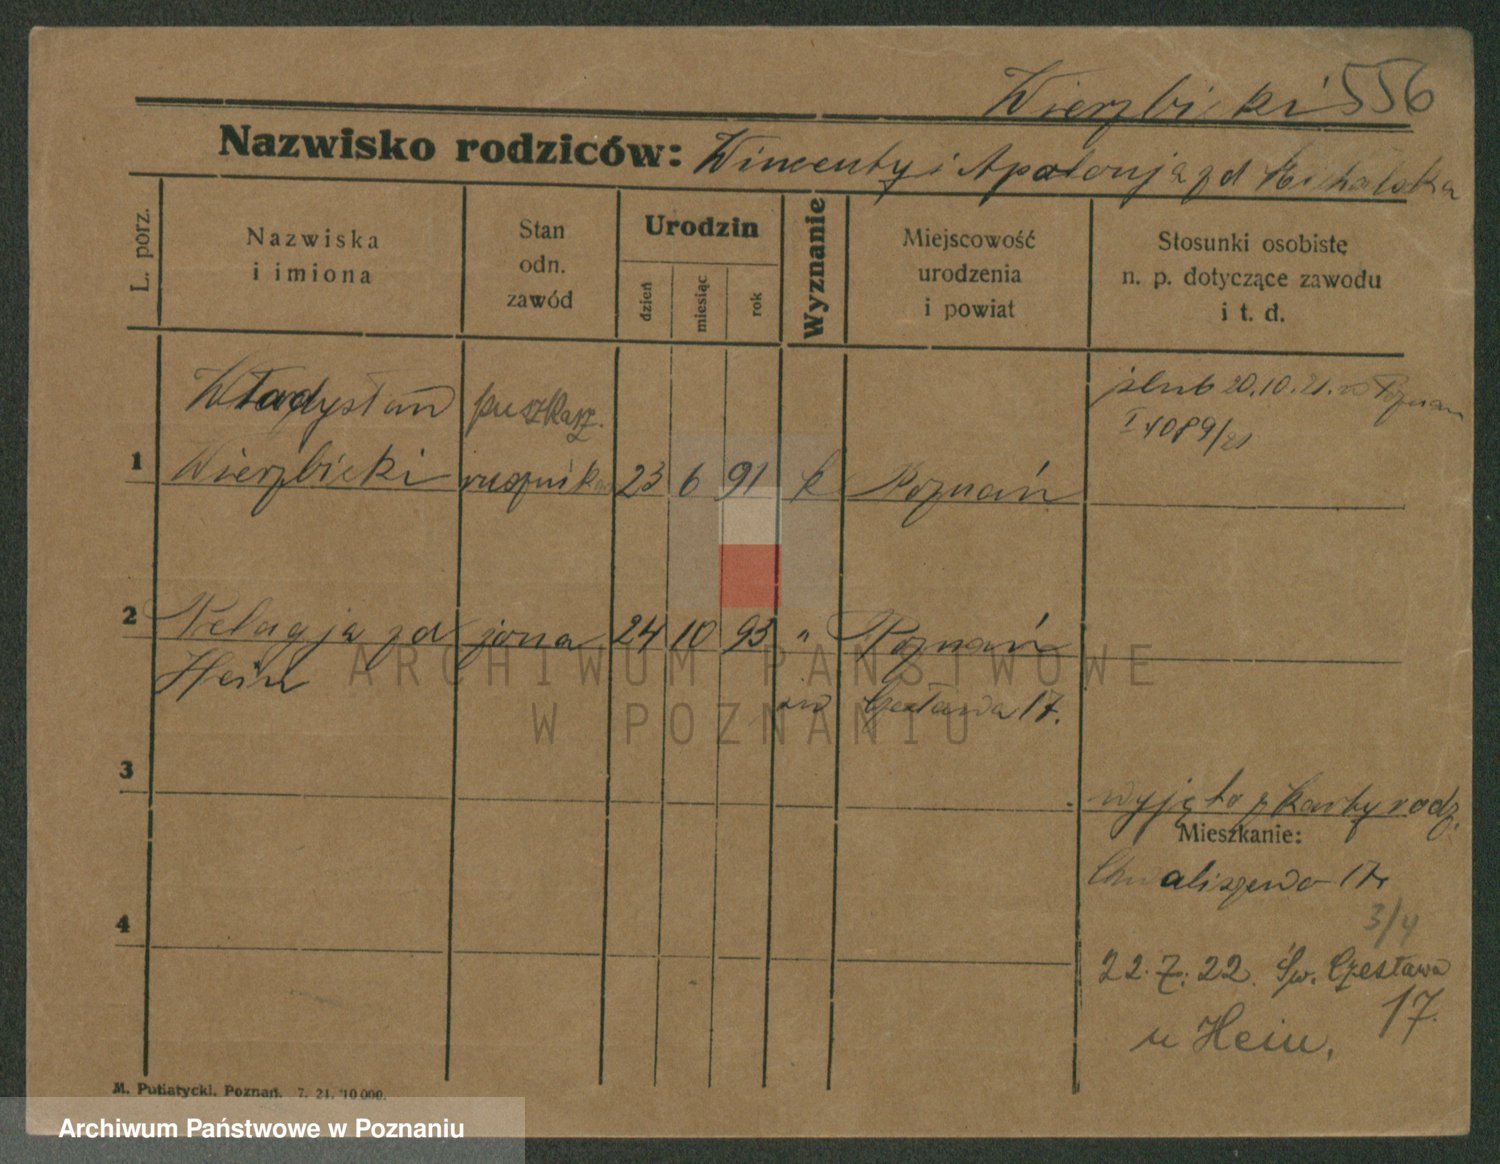 Wierzbicki 556
Nazwisko rodziców: Wincenty i Apolonja zd Michalska
L. porz.
Nazwiska
i imiona
Stan
odn.
zawód
Urodzin
dzień
miesiąc
rok
Wyznanie
Miejscowość
urodzenia
i powiat
Stosunki osobistę
n. p. dotyczące zawodu
i t. d.
Władysław puszkarz. ślub 20.10.21. w Poznan
I 1089/21
1 Wierzbicki 23 6 91 k Poznań
2 Pelagja zd żona 24 10 93 " Poznań
Hein
św Czesława 17.
3
wyjęto z karty rodz.
Mieszkanie:
Chwaliszewo 17
3/4
4
22.7.22. Św. Czesława
17.
u Hein.
M. Putiatycki, Poznań. 7. 21. 10 000.
ARCHIWUM PAŃSTWOWE
W POZNANIU
Archiwum Państwowe w Poznaniu